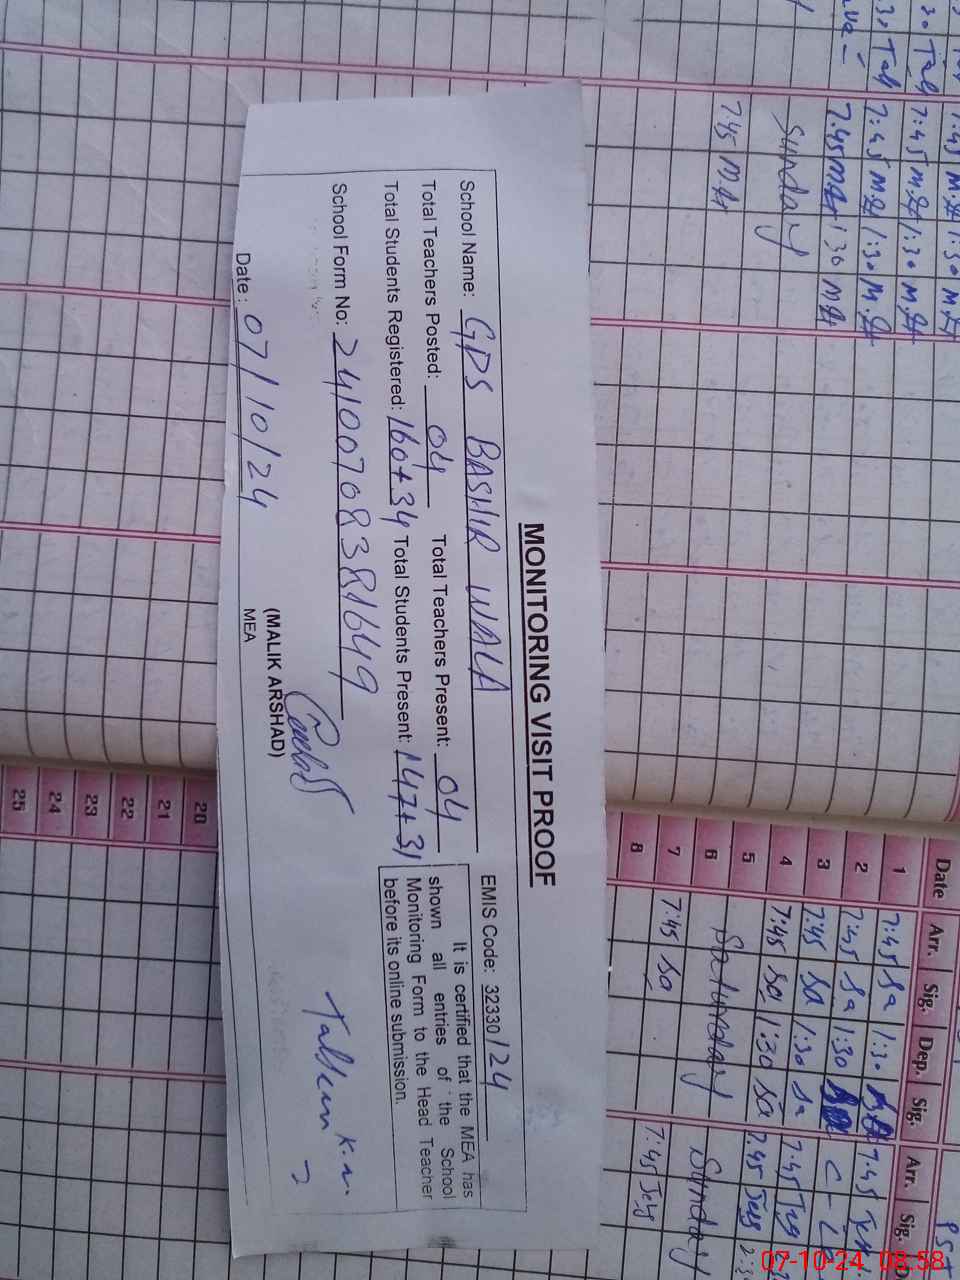 MONITORING VISIT PROOF
School Name: GPS BASHIR WALA EMIS Code: 32330124
Total Teachers Posted: 04 Total Teachers Present: 04
Total Students Registered: 160+34 Total Students Present: 147+31
School Form No: 24100708381649
It is certified that the MEA has
shown all entries of the School
Monitoring Form to the Head Teacher
before its online submission.
Date: 07/10/24
(MALIK ARSHAD)
MEA
7:45 M.A 1:30 M.A
7:45 M.A 1:30 M.A
7.45 M.A 1:30 M.A
Sunday
7.45 M.A
Date Arr. Sig. Dep. Sig. Arr. Sig.
1 7:45 Sa 1:30
2 7:45 Sa 1:30 7.45
3 7:45 Sa 1:30 Sa C-L
4 7:45 Sa 1:30 Sa 7.45
5 7.45
6 Sunday
7 7:45 Sa 7:45
8
20
21
22
23
24
25
07-10-24 08:58